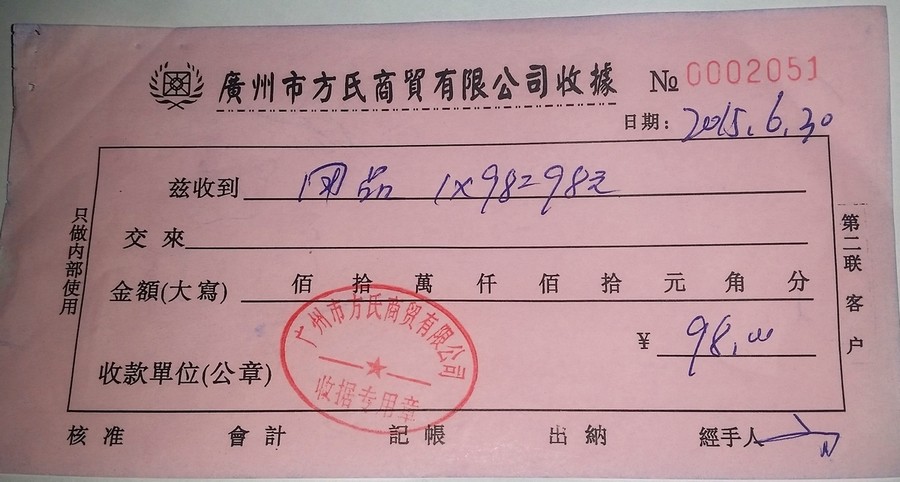 廣州市方氏商貿有限公司收據 № 0002051
日期: 2015.6.30
兹收到 1×98=98元
交 來
金額(大寫) 佰 拾 萬 仟 佰 拾 元 角 分
¥ 98.00
收款單位(公章)
广州市方氏商贸有限公司
收据专用章
核 准 會 計 記 帳 出 納 經手人
只做内部使用
第二联 客户